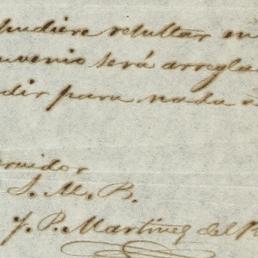 pudiere resultar en
nvenio será arregla
dir para nada a
ervidor
S. M. B.
J. P. Martinez del R